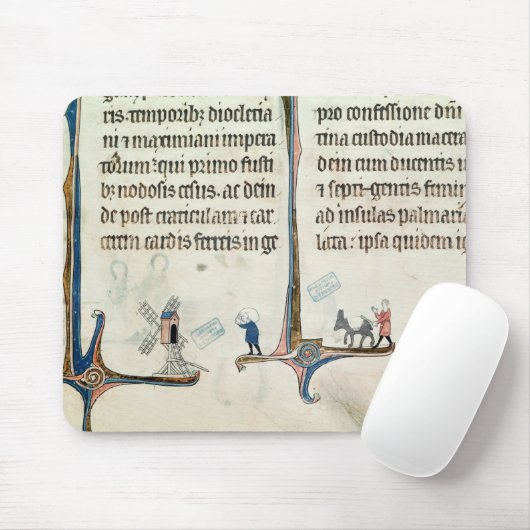 ris. temporibꝫ diocletia
ni ⁊ maximiani impera
torum: qui primo fusti
bꝫ nodosis cesus. ac dein
de post craticulam ⁊ car
cerem cardis ferreis in ge
pro confessione dñi
tina custodia macera
dein cum ducentis
⁊ septi-gentis femin
ad insulas palmaria
lata: ipsa quidem ig